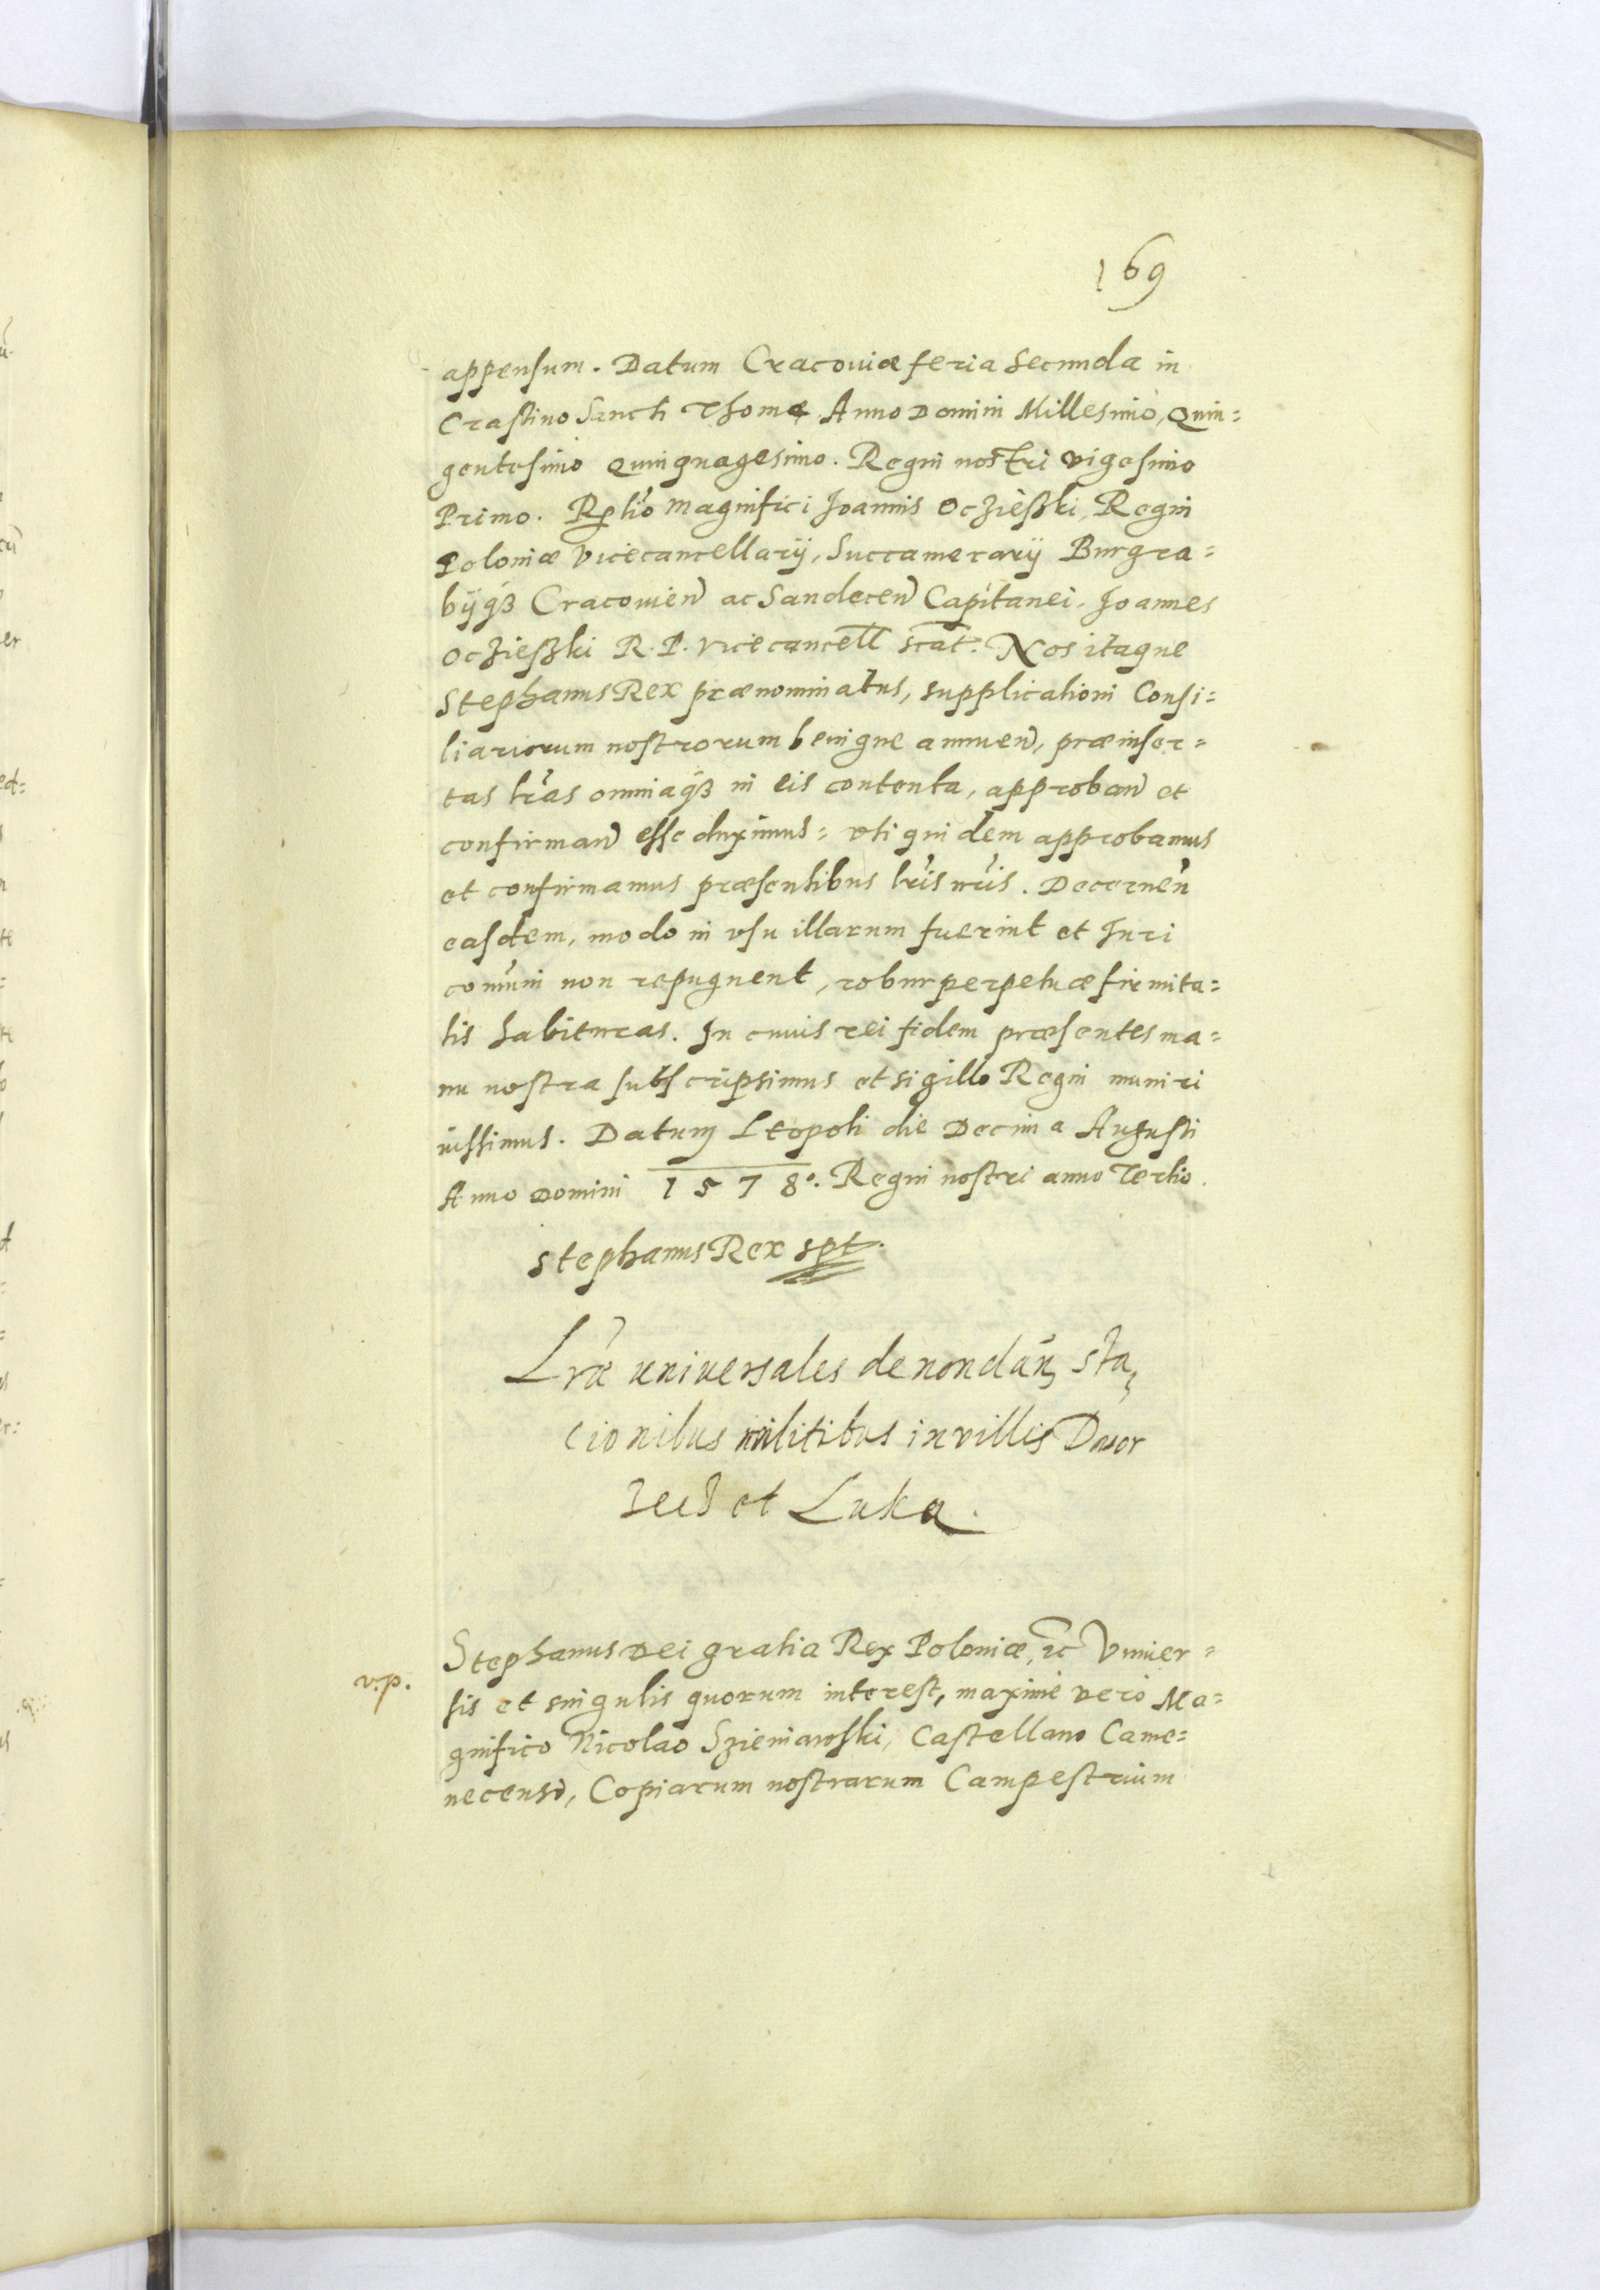 169
appensum. Datum Cracoviæ feria Secunda in
Crastino Sancti Thomę Anno Domini Millesimo, Quin=
gentesimo Quinquagesimo. Regni nostri vigesimo
Primo. Rẽltio Magnifici Joannis Oczieszki, Regni
Poloniæ Vicecancellarij, Succamerarij Burgra=
bijq₃ Cracovieñ ac Sandeceñ Capitanei. Joannes
Oczieszki R. P. Vicecancell scat. Nos itaque
Stephanus Rex prænominatus, supplicationi Consi=
liariorum nostrorum benigne annueñ, præinser=
tas lr̃as omniaq₃ in eis contenta, approbañ et
confirmañ esse duximus: vti quidem approbamus
et confirmamus præsentibus lr̃is nr̃is. Decerneñ
easdem, modo in vsu illarum fuerint et Juri
com̃uni non repugnent, robur perpetuæ firmita=
tis habituras. In cuius rei fidem præsentes ma=
nu nostra subscripsimus et sigillo Regni muniri
iussimus. Datum Leopoli die Decima Augusti
Anno Domini 1578°. Regni nostri anno Tertio.
Stephanus Rex spt.
Lr̃æ universales de non dan̄ sta,
cionibus militibus in villis Dwor
zecz et Luka.
v.p.
Stephanus Dei gratia Rex Poloniæ, ꝛc Vniver=
sis et singulis quorum interest, maxime vero Ma=
gnifico Nicolao Szieniawski, Castellano Came=
necensi, Copiarum nostrarum Campestrium